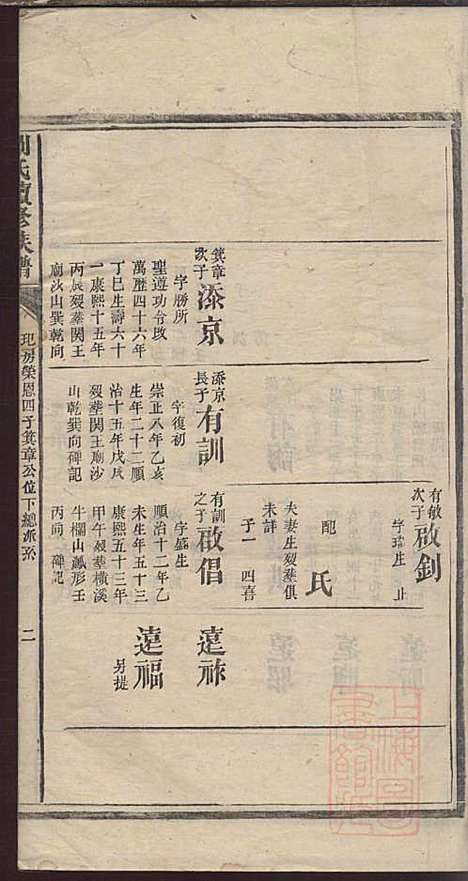 有敏
次子
啟釗
字瑋生 止
配
氏
夫妻生歿葬俱
未詳
子一 四喜
箕章
次子
添京
字勝所
聖遵功令改
萬歷四十六年
丁巳生壽六十
一康熙十五年
丙辰歿葬関王
廟沙山巽乾向
添京
長子
有訓
字復初
崇正八年乙亥
生年二十二順
治十五年戊戌
歿葬関王廟沙
山乾巽向碑記
有訓
之子
啟倡
字盛生
順治十二年乙
未生年五十三
康熙五十三年
甲午歿葬橫溪
牛欄山鳳形壬
丙向 碑記
遠祚
遠福
另提
氏續修族譜
玘房榮恩四子箕章公位下總派系
二
上海圖書館藏